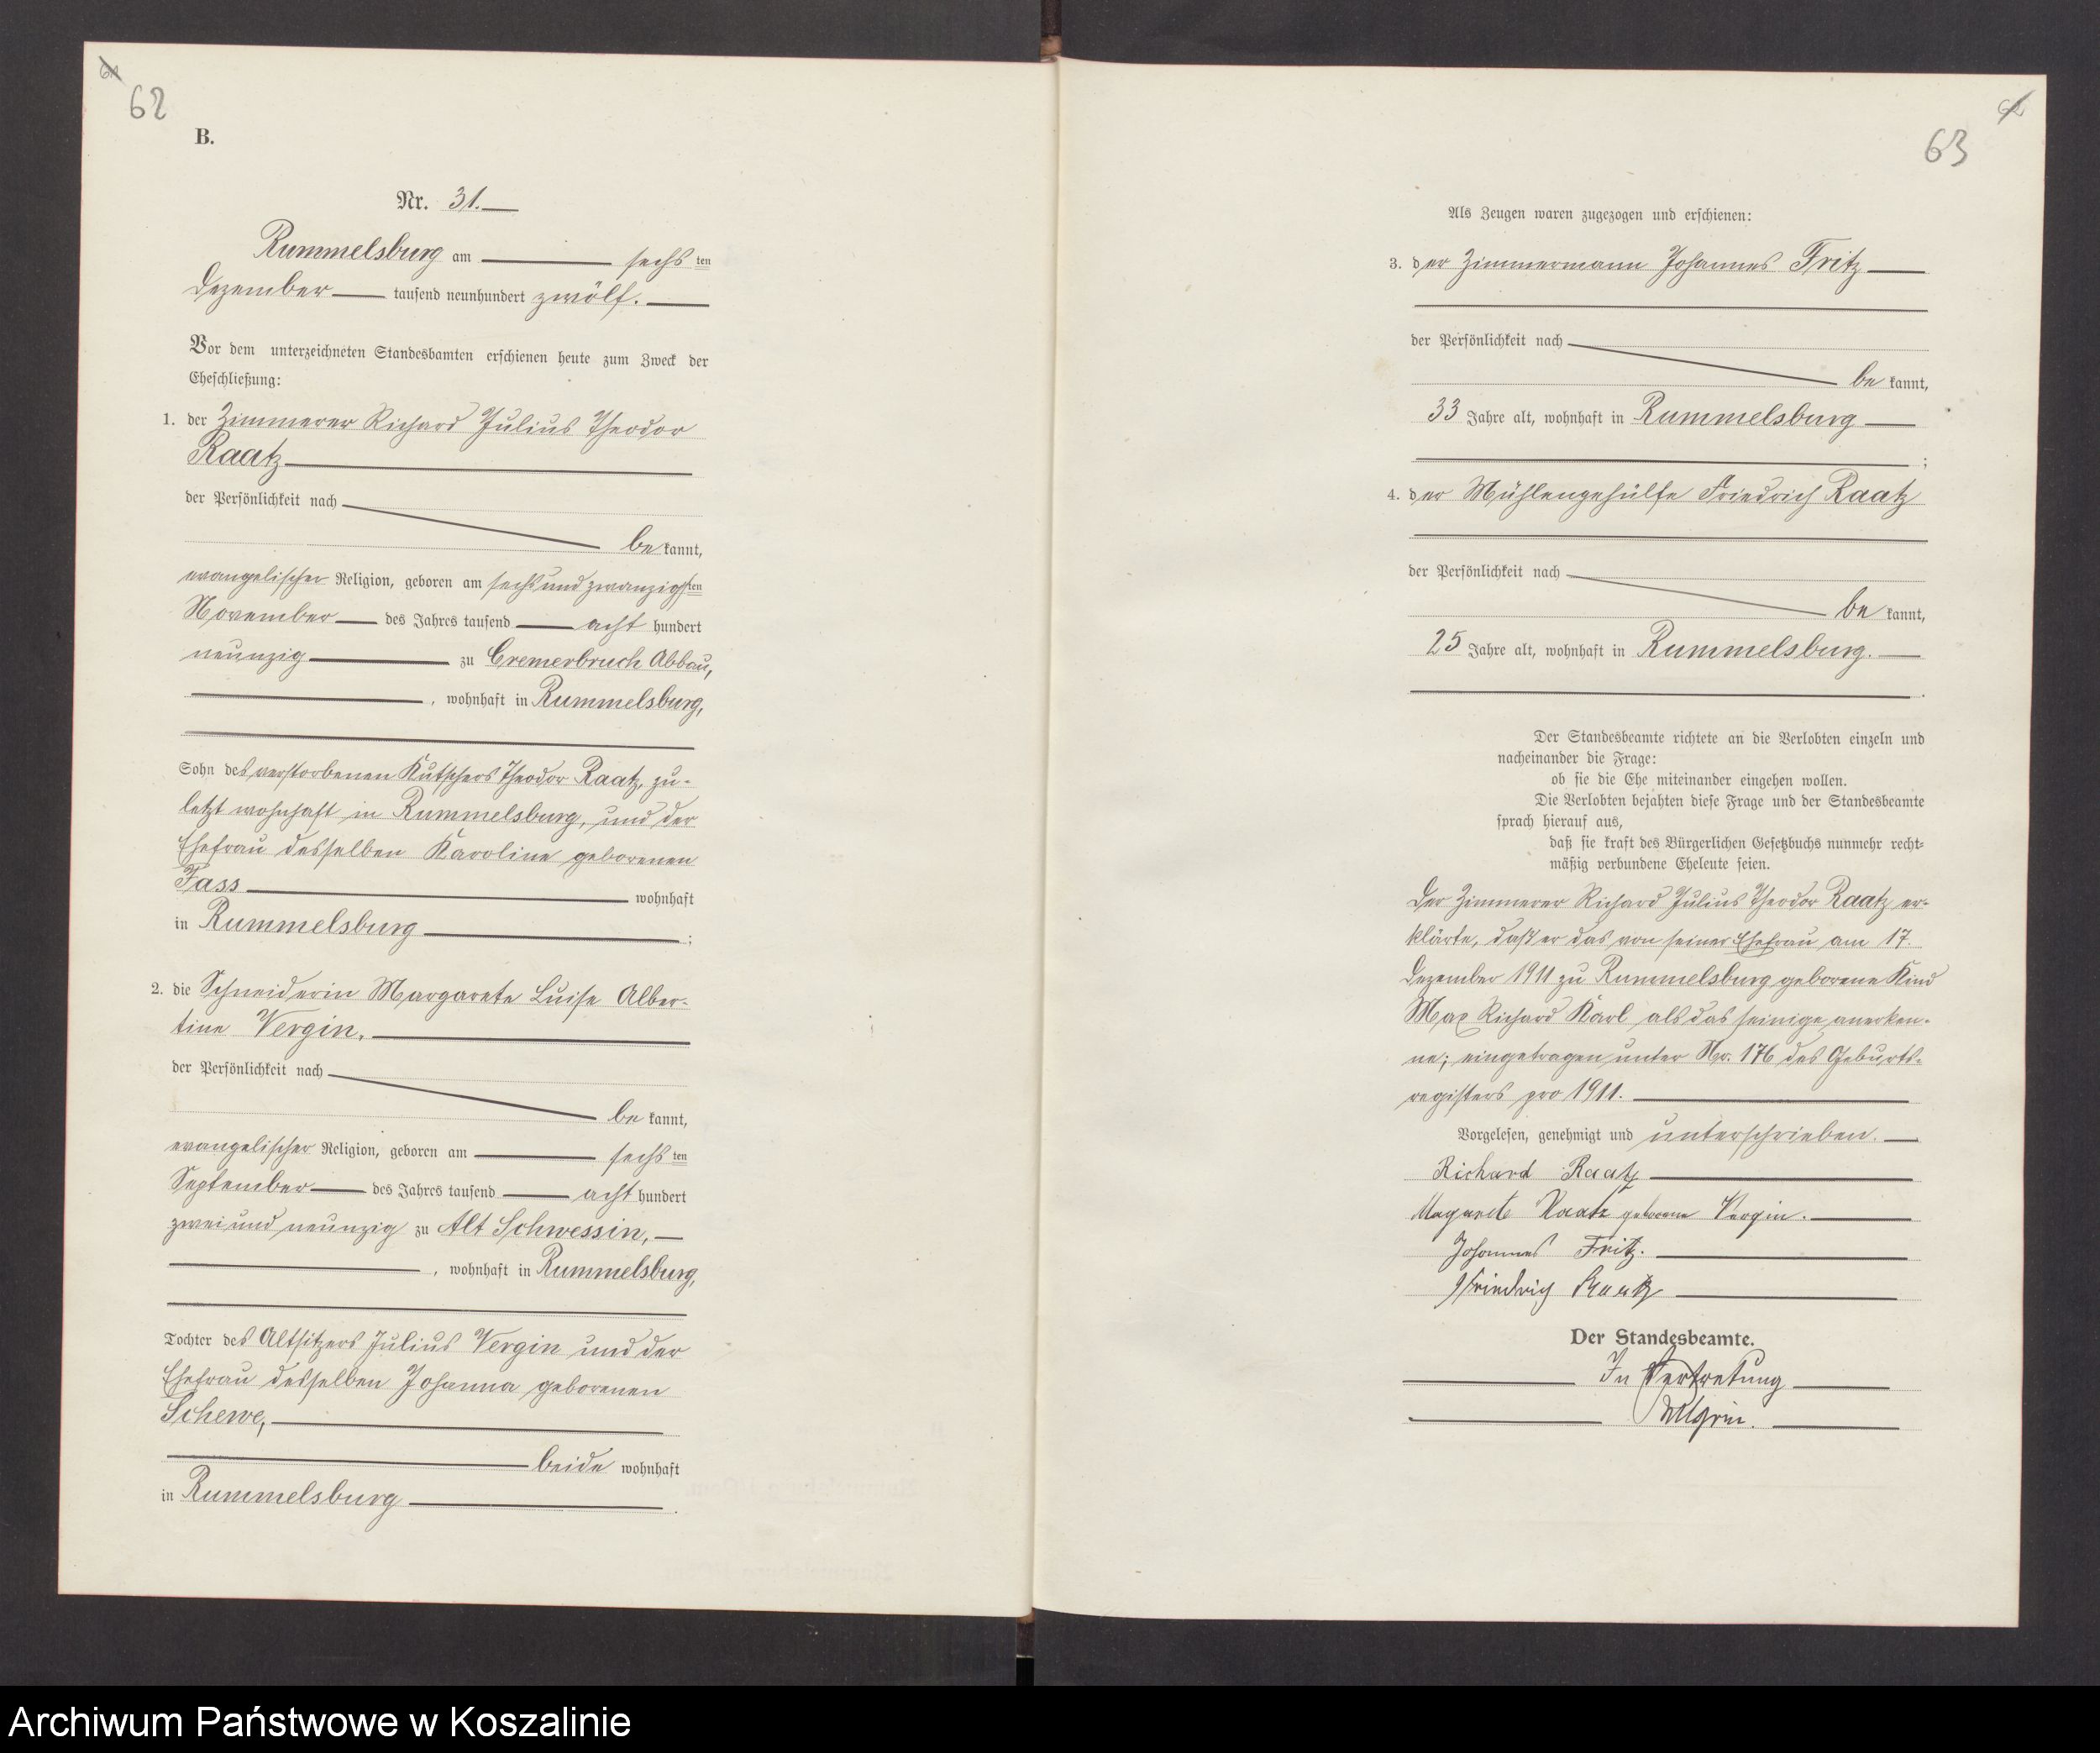 62
B.
Nr. 31.
Rummelsburg am sechs ten
Dezember tausend neunhundert zwölf.
Vor dem unterzeichneten Standesbamten erschienen heute zum Zweck der
Eheschließung:
1. der Zimmerer Richard Julius Theodor
Raatz
der Persönlichkeit nach
be kannt,
evangelischer Religion, geboren am sechsundzwanzigsten
November des Jahres tausend acht hundert
neunzig zu Cremerbruch Abbau,
, wohnhaft in Rummelsburg,
Sohn des verstorbenen Kutschers Theodor Raatz, zu-
letzt wohnhaft in Rummelsburg, und der
Ehefrau desselben Karoline geborenen
Fass wohnhaft
in Rummelsburg ;
2. die Schneiderin Margarete Luise Alber-
tine Vergin,
der Persönlichkeit nach
be kannt,
evangelischer Religion, geboren am sechs ten
September des Jahres tausend acht hundert
zweiundneunzig zu Alt Schwessin,
, wohnhaft in Rummelsburg,
Tochter des Altsitzers Julius Vergin und der
Ehefrau desselben Johanna geborenen
Schewe,
beide wohnhaft
in Rummelsburg .
63
Als Zeugen waren zugezogen und erschienen:
3. der Zimmermann Johannes Fritz
der Persönlichkeit nach
be kannt,
33 Jahre alt, wohnhaft in Rummelsburg
;
4. der Mühlengehülfe Friedrich Raatz
der Persönlichkeit nach
be kannt,
25 Jahre alt, wohnhaft in Rummelsburg.
.
Der Standesbeamte richtete an die Verlobten einzeln und
nacheinander die Frage:
ob sie die Ehe miteinander eingehen wollen.
Die Verlobten bejahten diese Frage und der Standesbeamte
sprach hierauf aus,
daß sie kraft des Bürgerlichen Gesetzbuchs nunmehr recht-
mäßig verbundene Eheleute seien.
Der Zimmerer Richard Julius Theodor Raatz er-
klärte, daß er das von seiner Ehefrau am 17.
Dezember 1911 zu Rummelsburg geborene Kind
Max Richard Karl als das seinige anerken-
ne; eingetragen unter Nr. 176 des Geburts-
registers pro 1911.
Vorgelesen, genehmigt und unterschrieben.
Richard Raatz
Magarete Raatz geborene Vergin.
Johannes Fritz.
Friedrich Raatz
Der Standesbeamte.
In Vertretung
Archiwum Państwowe w Koszalinie